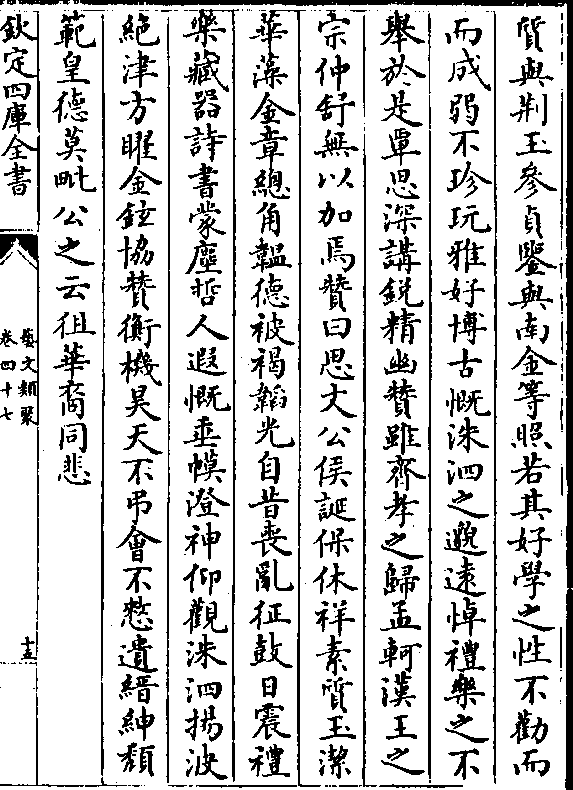 質與荆玉參貞鑒與南金等照若其好學之性不勸而
而成弱不珍玩雅好博古慨洙泗之邈遠悼禮樂之不
舉於是覃思深講鋭精幽賛雖齊孝之歸孟軻漢王之
宗仲舒無以加焉賛曰思文公侯誕保休祥素質玉潔
華藻金章總角韞德被褐韜光自昔喪亂征鼓日震禮
樂藏器詩書蒙塵哲人遐慨垂幙澄神仰觀洙泗揚波
絶津方曜金鉉協賛衡機昊天不弔會不憗遺縉紳頽
範皇德莫毗公之云徂華裔同悲
欽定四庫全書
藝文類聚
卷四十七
十五